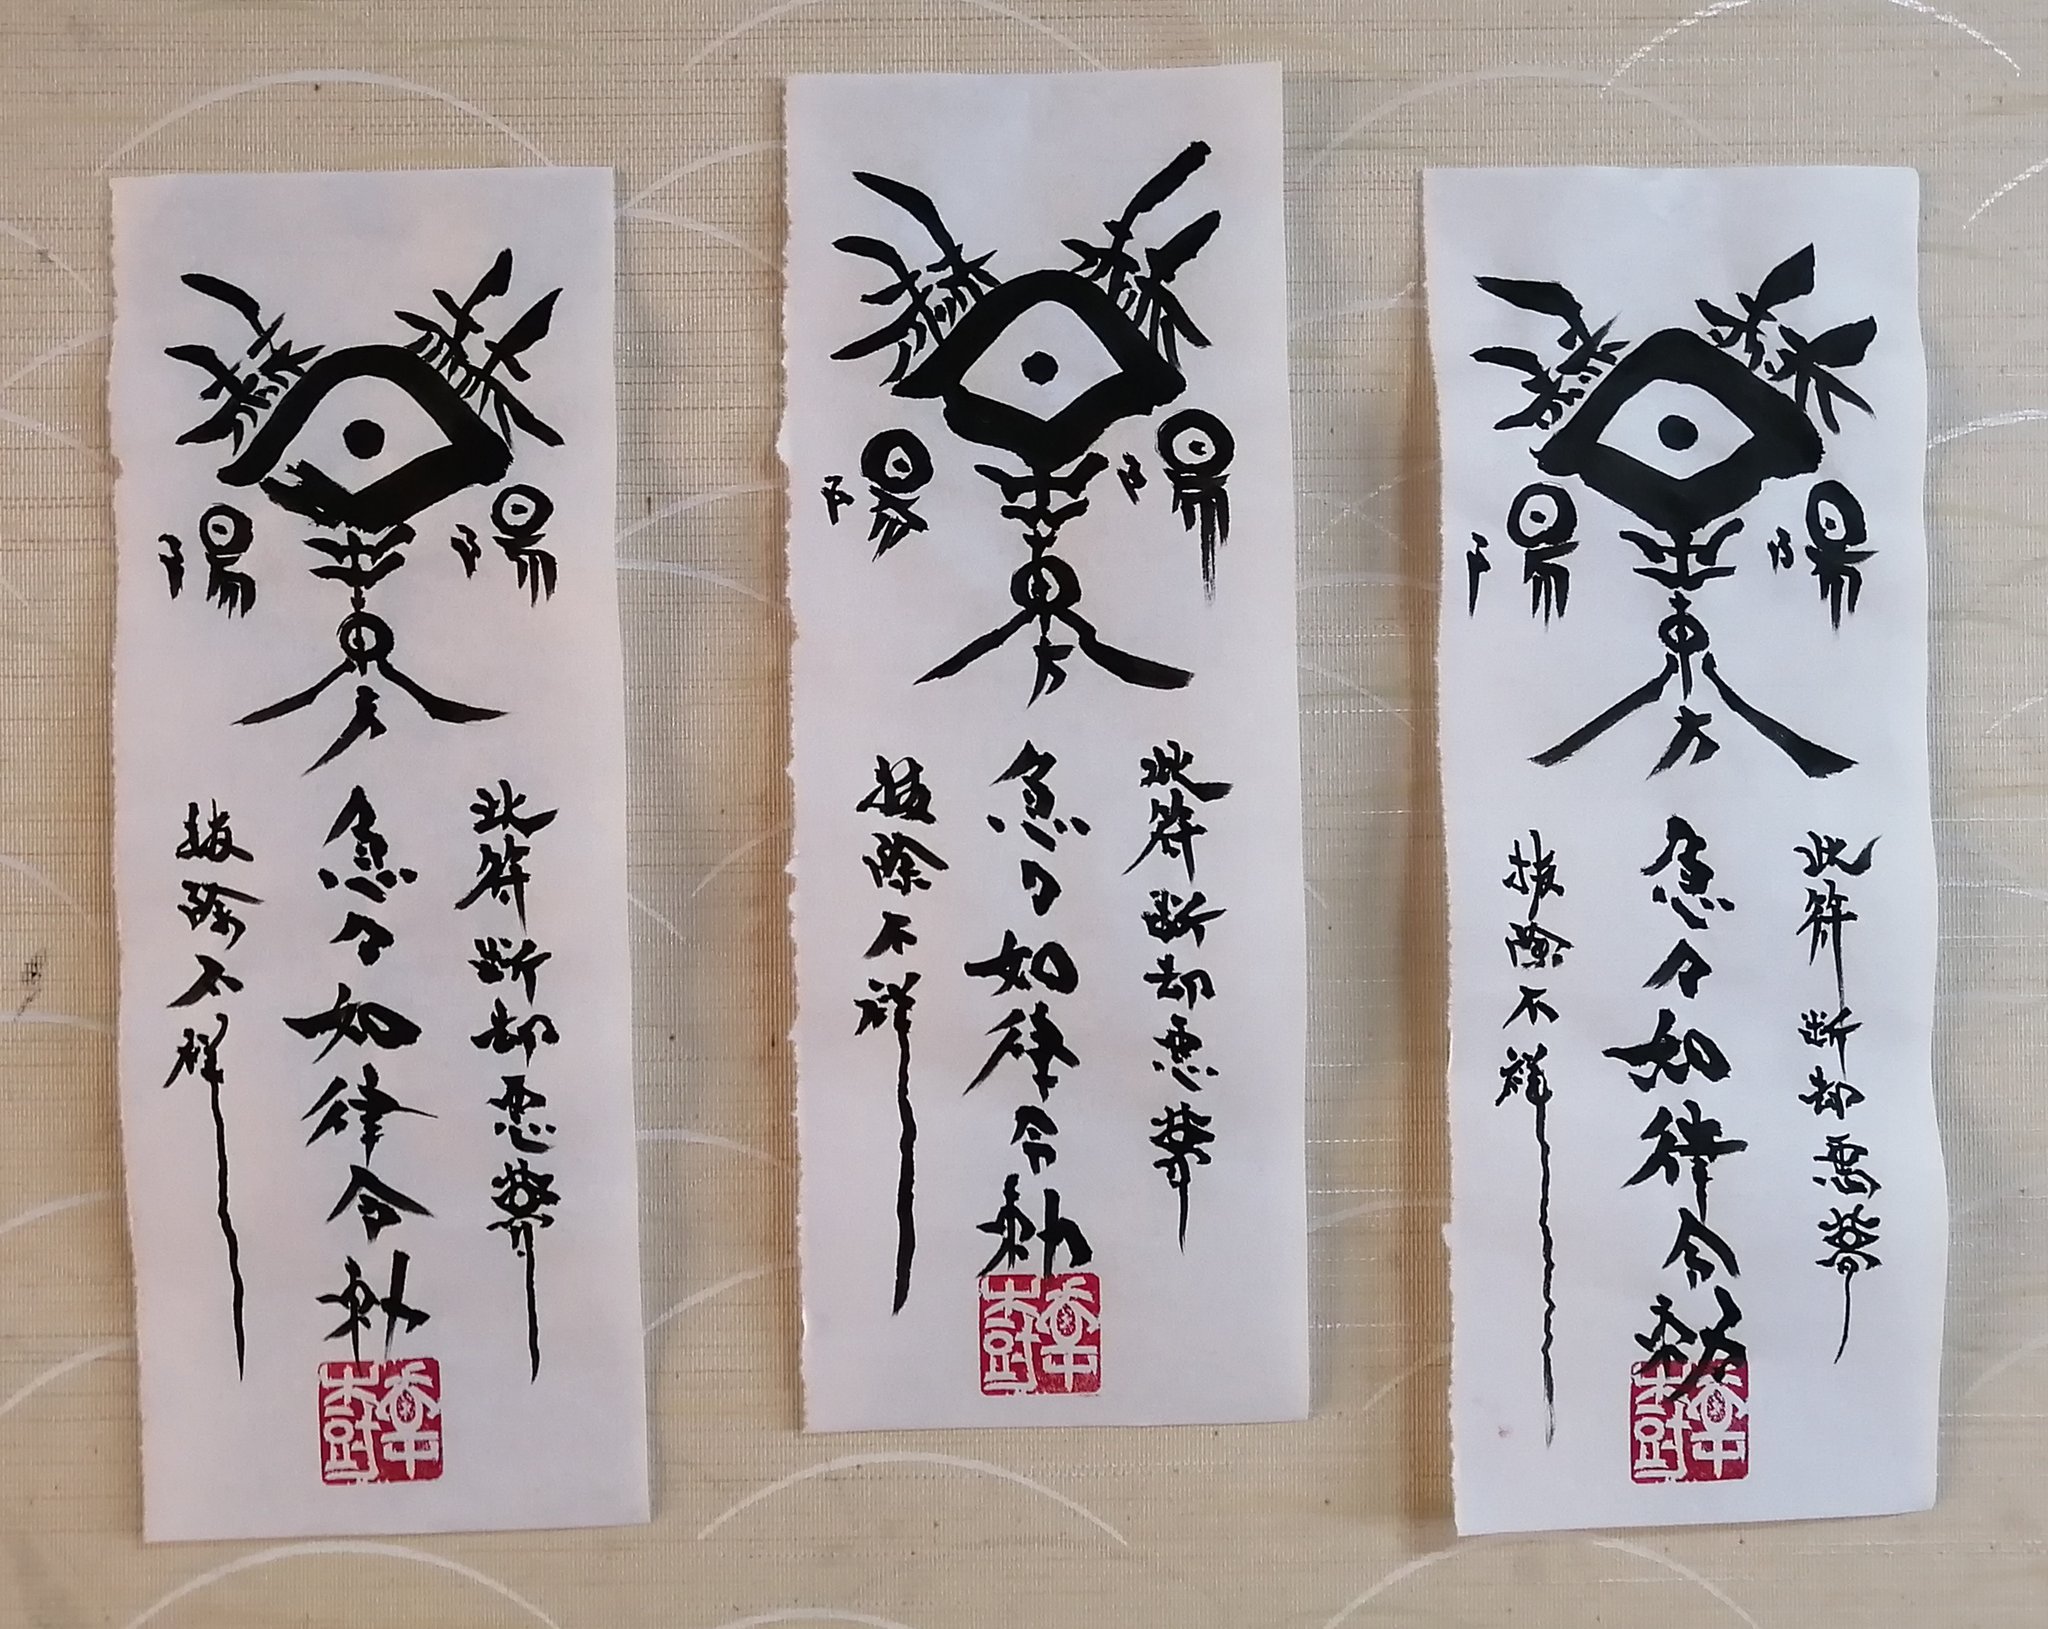 陽
陽
東方
此符断却悪夢
急々如律令勅
抜除不祥
陽
陽
東方
此符断却悪夢
急々如律令勅
抜除不祥
陽
陽
東方
此符断却悪夢
急々如律令勅
抜除不祥